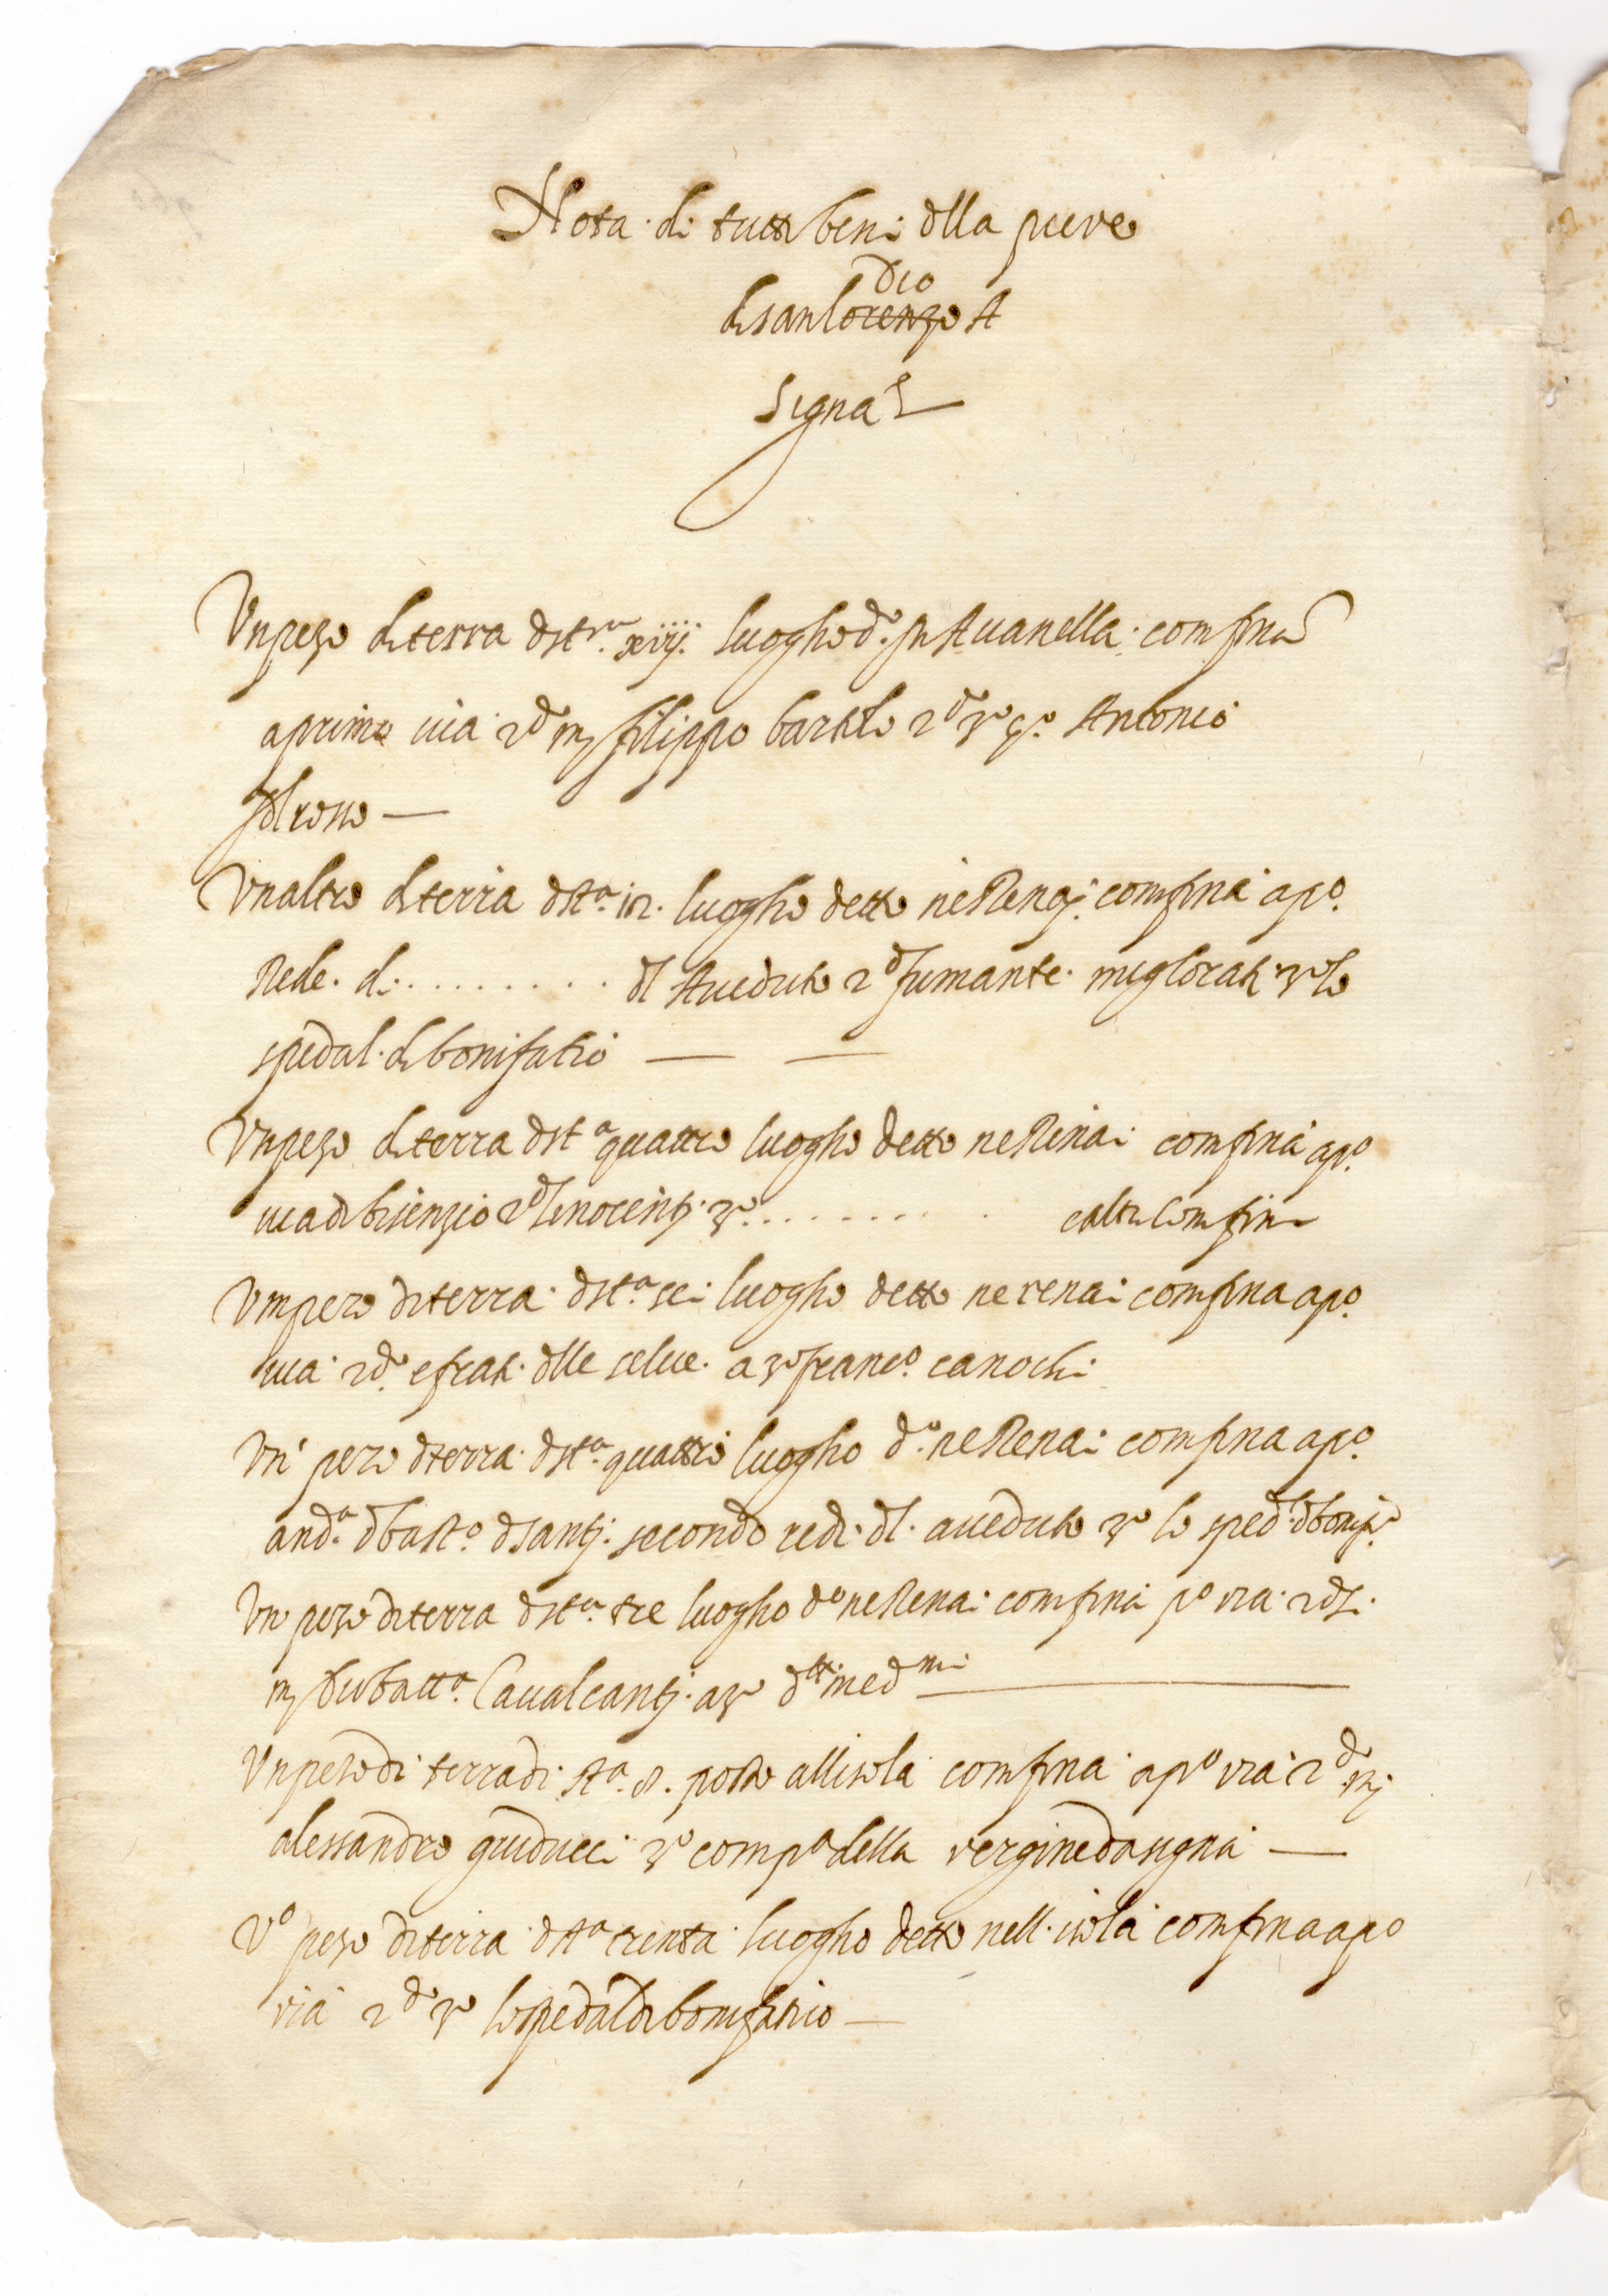 Nota di tutti beni dlla pieve
dio
di san lorenzo A
Signa
Un pezo di terra di sta xiiij luogho do in Avanella confina
a primo via 2do m filippo 2do 3o 4o Antonio
del rosso —
Un altro di terra di sta luogho detto ne Renaj confina a po
Rede di ......... dl Aveduto 2do fumante migliorati 3o lo
spedal di bonifatio — —
Un pezo di terra di sta quattro luogho detto ne Renai confina a po
via di bisenzio 2do Inocentj 3o .......... e altri confini
Un pezo di terra di sta sei luogho detto ne renai confina a po
via 2do e frati dlle selve a 3o franco canochi
Un pezo di terra di sta quattro luogho do ne Renai confina a po
anda di basto di santj secondo rede dl aveduto 3o lo sped di bonifo
Un pezo di terra di sta tre luogho do ne Renai confina po via 2do
m batta Cavalcantj a 3o dtti medmi —
Un pezo di terra di sta 8 posto allisola confina a po via 2do m
alessandro guiducci 3o compa della vergine da signa —
Uo pezo di terra di sta trenta luogho detto nell isola confina a po
via 2do 3o lo spedal di bonifatio —